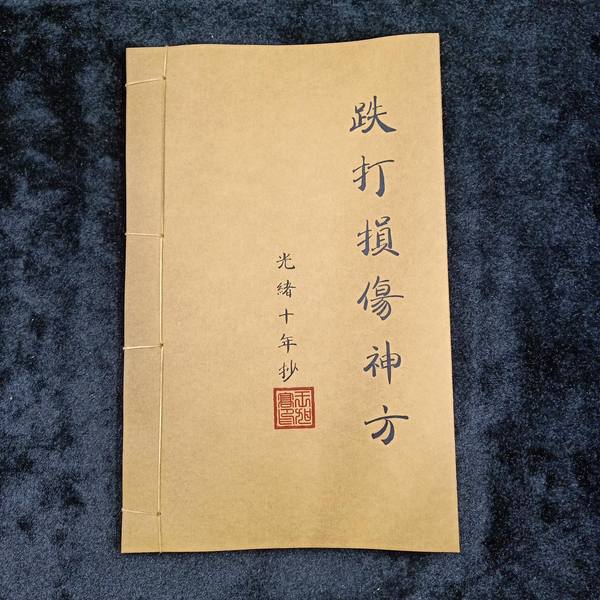 跌打損傷神方
光緒十年抄